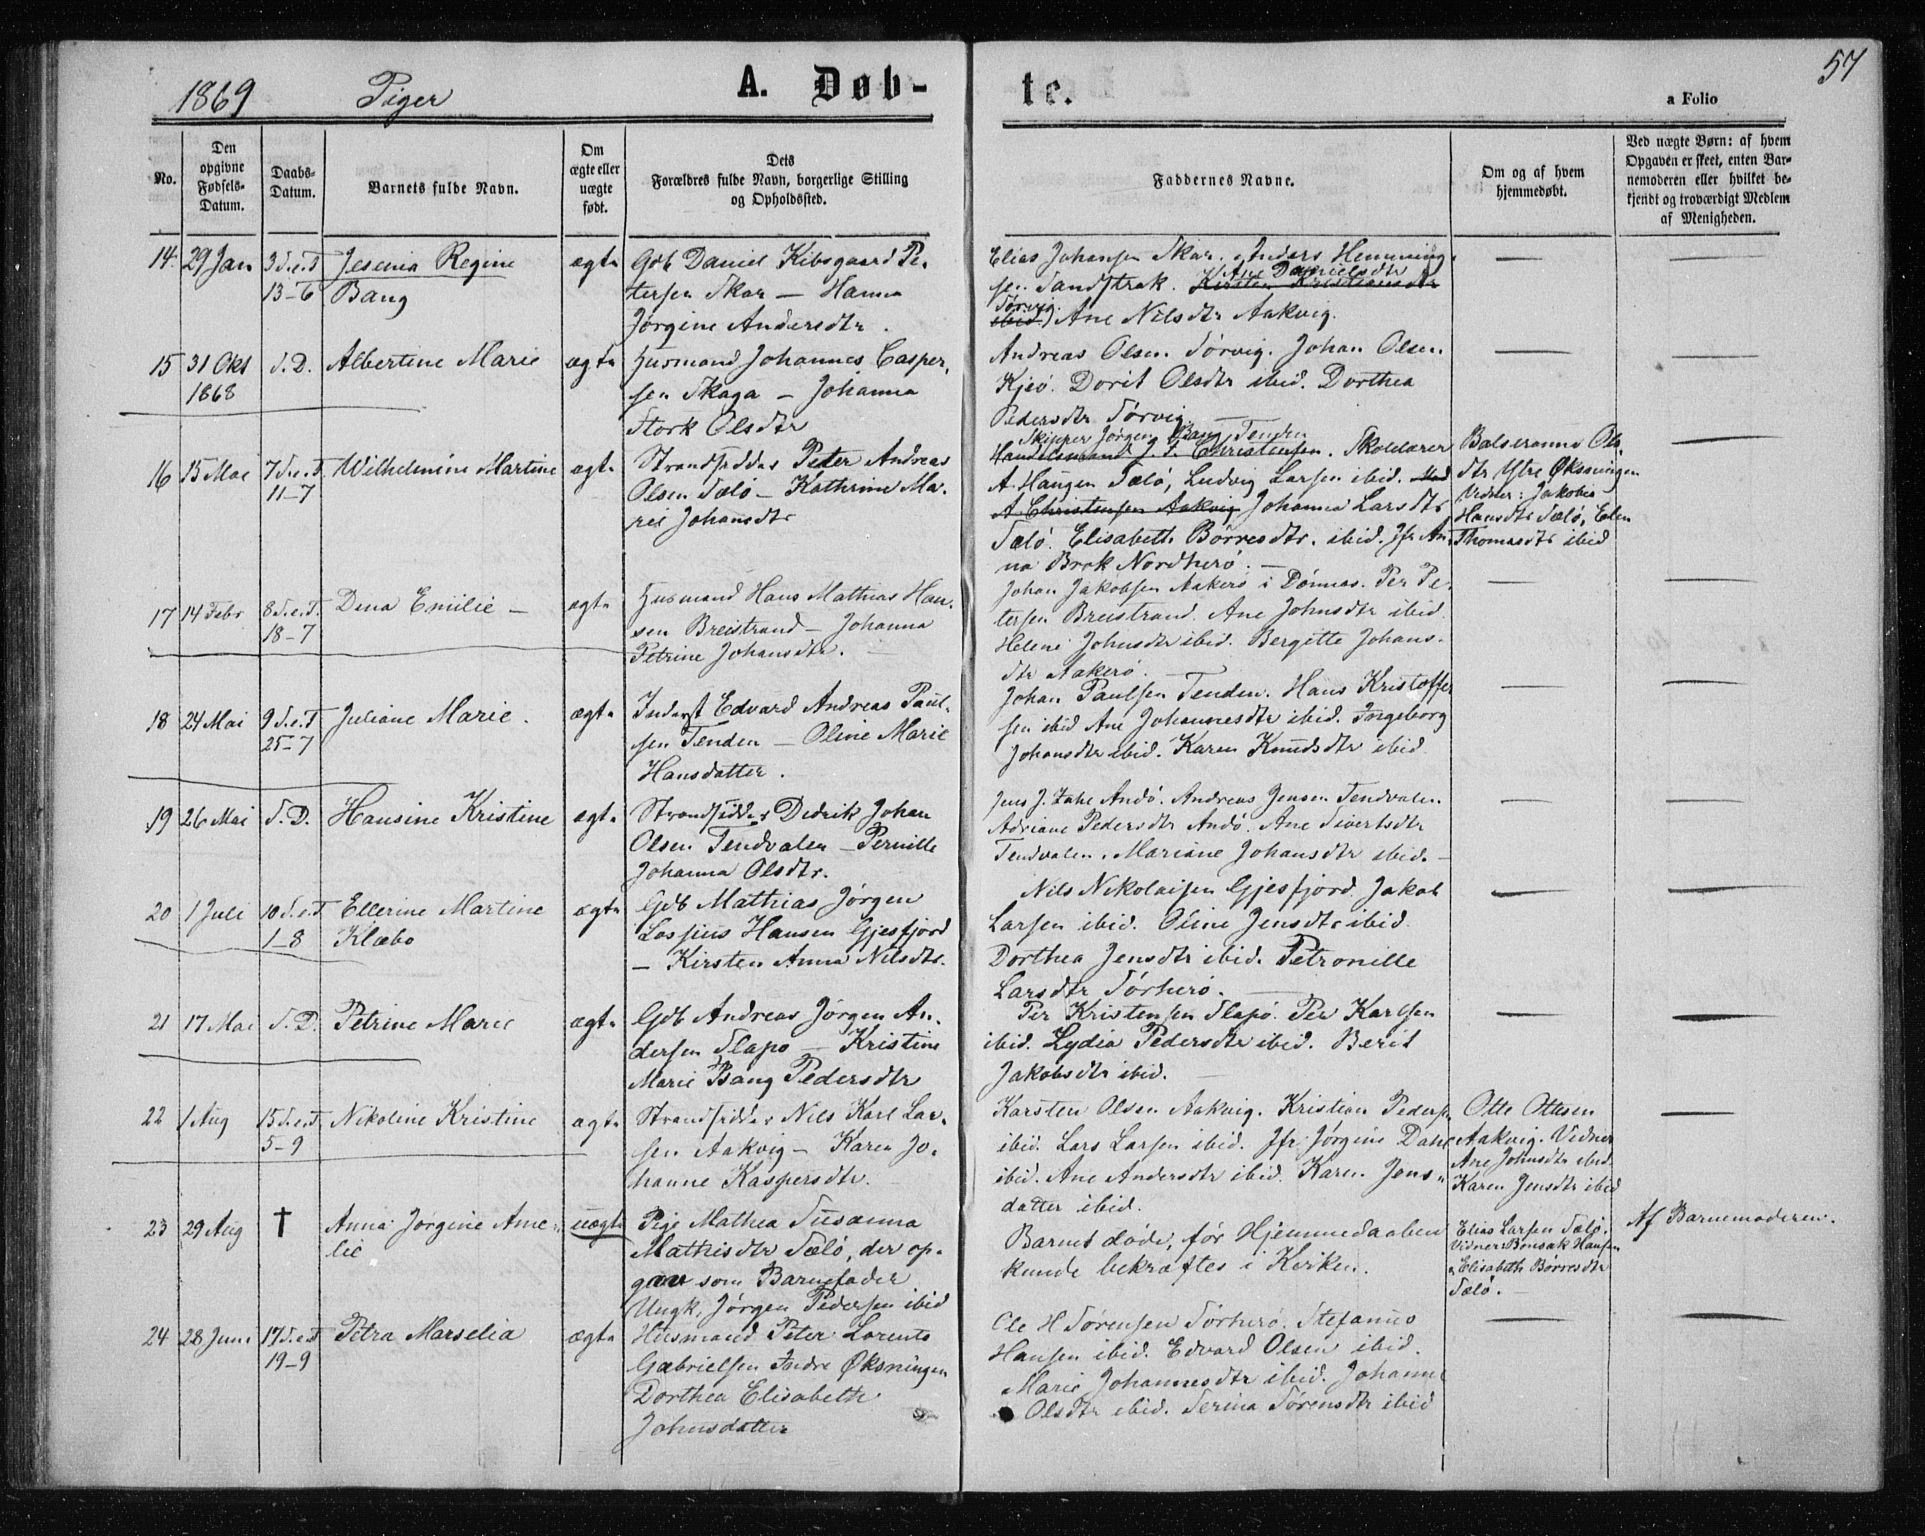 57
1869 Piger A. Døb-te. a Folio
No.
Den opgivne Fødsels-Datum.
Daabs-Datum.
Barnets fulde Navn.
Om ægte eller uægte født.
Dets Forældres fulde Navn, borgerlige Stilling og Opholdssted.
Faddernes Navne.
Om og af hvem hjemmedøbt.
Ved uægte Børn: af hvem
Opgaven er skeet, enten Bar-
nemoderen eller hvilket be-
kjendt og troværdigt Medlem
af Menigheden.
14. 29 Jan 3 S.e.T 13-6
Jesenia Regine
Bang
ægte
Gdb Daniel Kibsgaard Pe-
tersen Skar — Hanna
Jørgine Andersdtr.
Elias Johansen Skar. Anders Henning-
Ane Danielsdtr
sen Sandstrak. Kirsten Kristiansdtr
Sørvig
ibid) Ane Nilsdtr Aakvig.
—
15 31 Okt 1868 S.D.
Albertine Marie
ægte
Husmand Johannes Casper-
sen Skaga — Johanna
Stork Olsdtr
Andreas Olsen Sørvig. Johan Olsen
Kjeö. Dorit Olsdtr ibid. Dorthea
Pedersdtr Sørvig. —
—
16 15 Mai 7 S.e.T. 11-7
Wilhelmine Martine
ægte
Strandsidder Peter Andreas
Olsen Sælö — Kathrine Ma-
rie Johansdtr
Skipper Jørgen Bang, Tenden
Handelsmand J. S. Christensen. Skolelærer
A Haugen Sælö, Ludvig Larsen ibid.
A Christensen Aakvig Johanna Larsdtr
Sælö. Elisabeth Børresdtr. ibid. Jfr An-
na Brok Nordherö. —
Balseranna Ols-
dtr Ytre Øksningen
Vidner: Jakobia
Hansdtr Sælö, Elen
Thomasdtr ibid
—
17 14 Febr 8 S.e.T. 18-7
Dina Emilie —
ægte
Husmand Hans Mathias Han-
sen Breistrand — Johanna
Petrine Johansdtr.
Johan Jakobsen Aakerö i Dönnes. Per Pe-
tersen Breistrand. Ane Johnsdtr ibid
Helene Johnsdtr ibid. Bergitte Johans-
dtr Aakerö. —
—
18 24 Mai 9 S.e.T 25-7
Juliane Marie.
ægte
Inderst Edvard Andreas Paul-
sen Tenden — Oline Marie
Hansdatter.
Johan Paulsen Tenden. Hans Kristoffer
sen ibid Ane Johannesdtr ibid. Ingeborg
Johansdtr ibid. Karen Knudsdtr ibid
—
19 26 Mai S.D.
Hansine Kristine
ægte
Strandsidder Didrik Johan
Olsen Tendvalen — Pernille
Johanna Olsdtr.
Jens J. Zahl Andö. Andreas Jensen Tendvalen.
Adriane Pedersdtr Andö. Ane Sivertsdtr
Tendvalen. Mariane Johansdtr ibid. —
—
20 1 Juli 10 S.e.T 1-8
Ellerine Martine
Klæbo
ægte
Gdb Mathias Jørgen
Lossius Hansen Gjesfjord
— Kirsten Anna Nilsdtr.
Nils Nikolaisen Gjesfjord. Jakob
Larsen ibid. Oline Jensdtr ibid.
Dorthea Jensdtr ibid. Petronille
Larsdtr Sörherö. —
—
21 17 Mai S.D.
Petrine Marie
ægte
Gdb Andreas Jørgen An-
dersen Slapö — Kristine
Marie Bang Pedersdtr
Per Kristensen Slapö. Per Karlsen
ibid. Lydia Pedersdtr ibid. Berit
Jakobsdtr ibid. —
—
22 1 Aug 15 S.e.T 5-9
Nikoline Kristine
ægte
Strandsidder Nils Karl Lar-
sen Aakvig — Karen Jo-
hanne Kaspersdtr.
Karsten Olsen Aakvig. Kristian Peders.
ibid. Lars Larsen ibid. Jfr. Jørgine Dahl
ibid. Ane Andersdtr ibid. Karen Jens-
datter ibid.
Otte Ottesen
Aakvig. Vidner
Ane Johnsdtr ibid.
Karen Jensdtr ibid
—
23 29 Aug †
Anna Jørgine Ame-
lie
uægte
Pige Mathea Susanna
Mathisdtr Sælö, der op-
gav som Barnefader
Ungk. Jørgen Pedersen ibid
Barnet døde, før Hjemmedaaben
kunde bekræftes i Kirken.
Elias Larsen Sælö.
Vidner: Bonsak Hansen
& Elisabeth Børresdtr
Sælö.
Af Barnemoderen.
24 28 Juni 17 S.e.T 19-9
Petra Marselia
ægte
Husmand Peter Lorents
Gabrielsen Indre Øksningen
Dorthea Elisabeth
Johnsdatter
Ole H Sørensen Sørherö. Stefanus
Hansen ibid. Edvard Olsen ibid.
Marie Johannesdtr ibid. Johanne
Olsdtr ibid. Serina Sørensdtr ibid
—